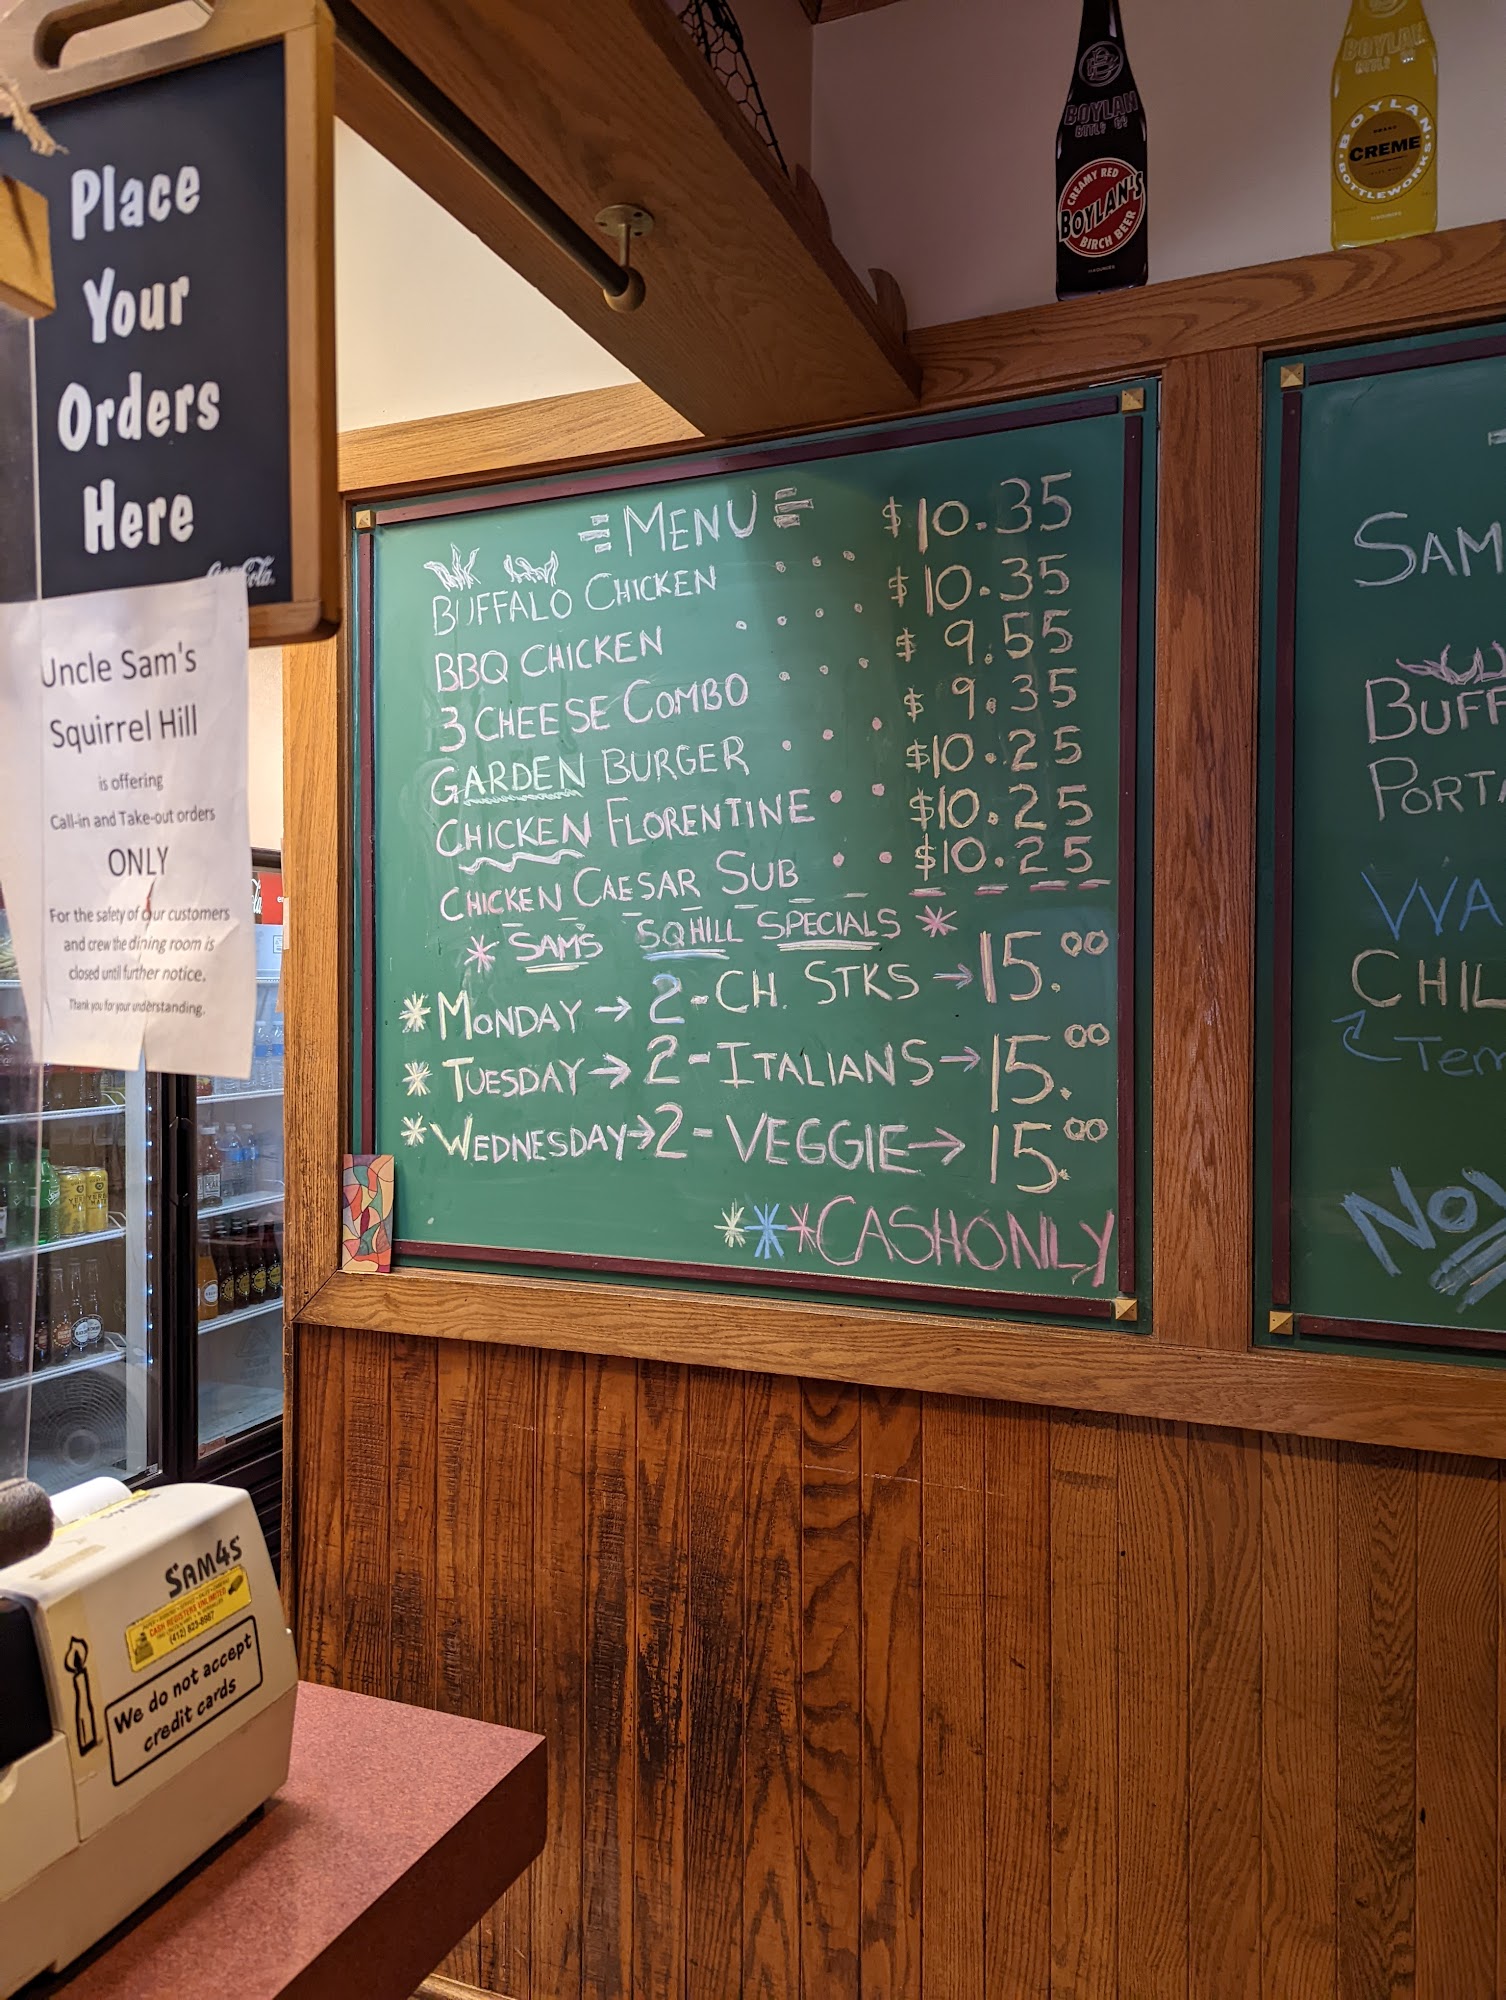 Place
Your
Orders
Here
Coca-Cola
Uncle Sam's
Squirrel Hill
is offering
Call-in and Take-out orders
ONLY
For the safety of our customers
and crew the dining room is
closed until further notice.
Thank you for your understanding.
MENU
BUFFALO CHICKEN . . . $10.35
BBQ CHICKEN . . . . $10.35
3 CHEESE COMBO . . . $9.55
GARDEN BURGER . . . $9.35
CHICKEN FLORENTINE . . $10.25
CHICKEN CAESAR SUB . . $10.25
$10.25
* SAM'S SQHILL SPECIALS *
* MONDAY → 2-CH. STKS → 15.00
* TUESDAY → 2-ITALIANS → 15.00
* WEDNESDAY → 2-VEGGIE → 15.00
***CASHONLY
BOYLAN
BOTTLG CO
CREAMY RED
BOYLAN'S
BIRCH BEER
BOYLAN
BOTTLG
BOYLAN
CREME
BOTTLEWORKS
SAM
BUFF
PORTA
WA
CHIL
Tem
NOW
SAM4S
CASH REGISTERS UNLIMITED
We do not accept
credit cards